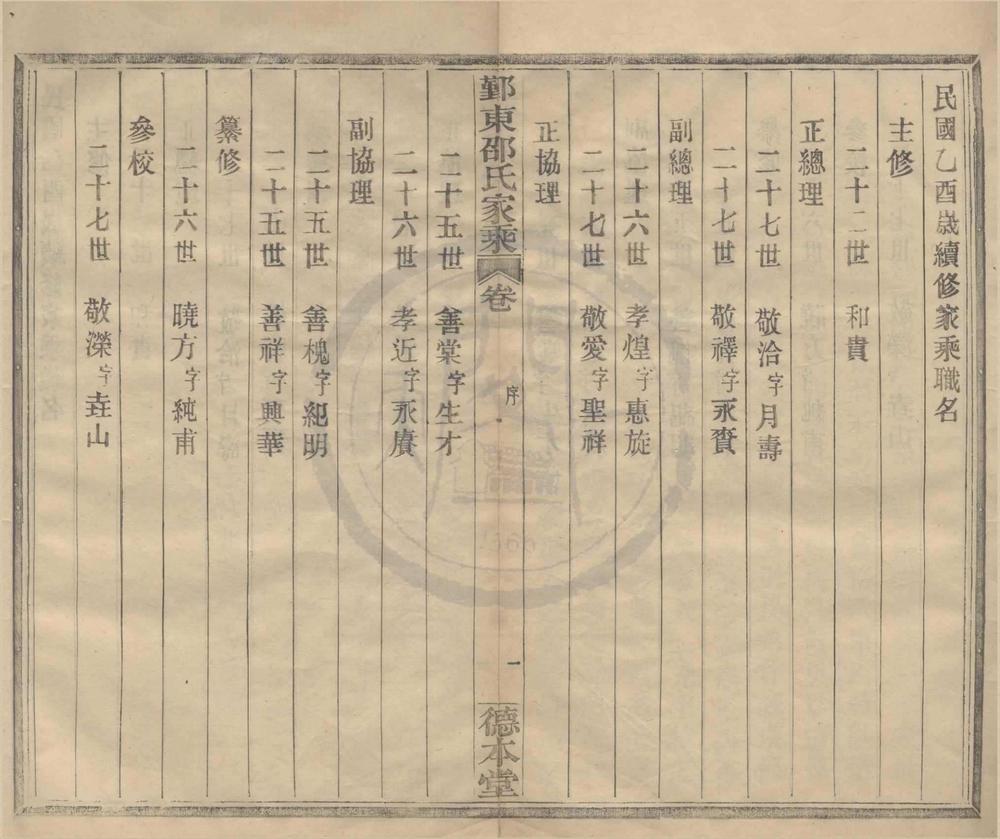 民國乙酉歲續修家乘職名
主修
二十二世 和貴
正總理
二十七世 敬洽字月壽
二十七世 敬禪字永賚
副總理
二十六世 孝煌字惠旋
二十七世 敬愛字聖祥
正協理
鄞東邵氏家乘 卷 序 一 德本堂
二十五世 善棠字生才
二十六世 孝近字永賡
副協理
二十五世 善槐字紀明
二十五世 善祥字興華
纂修
二十六世 曉方字純甫
參校
二十七世 敬濚字垚山